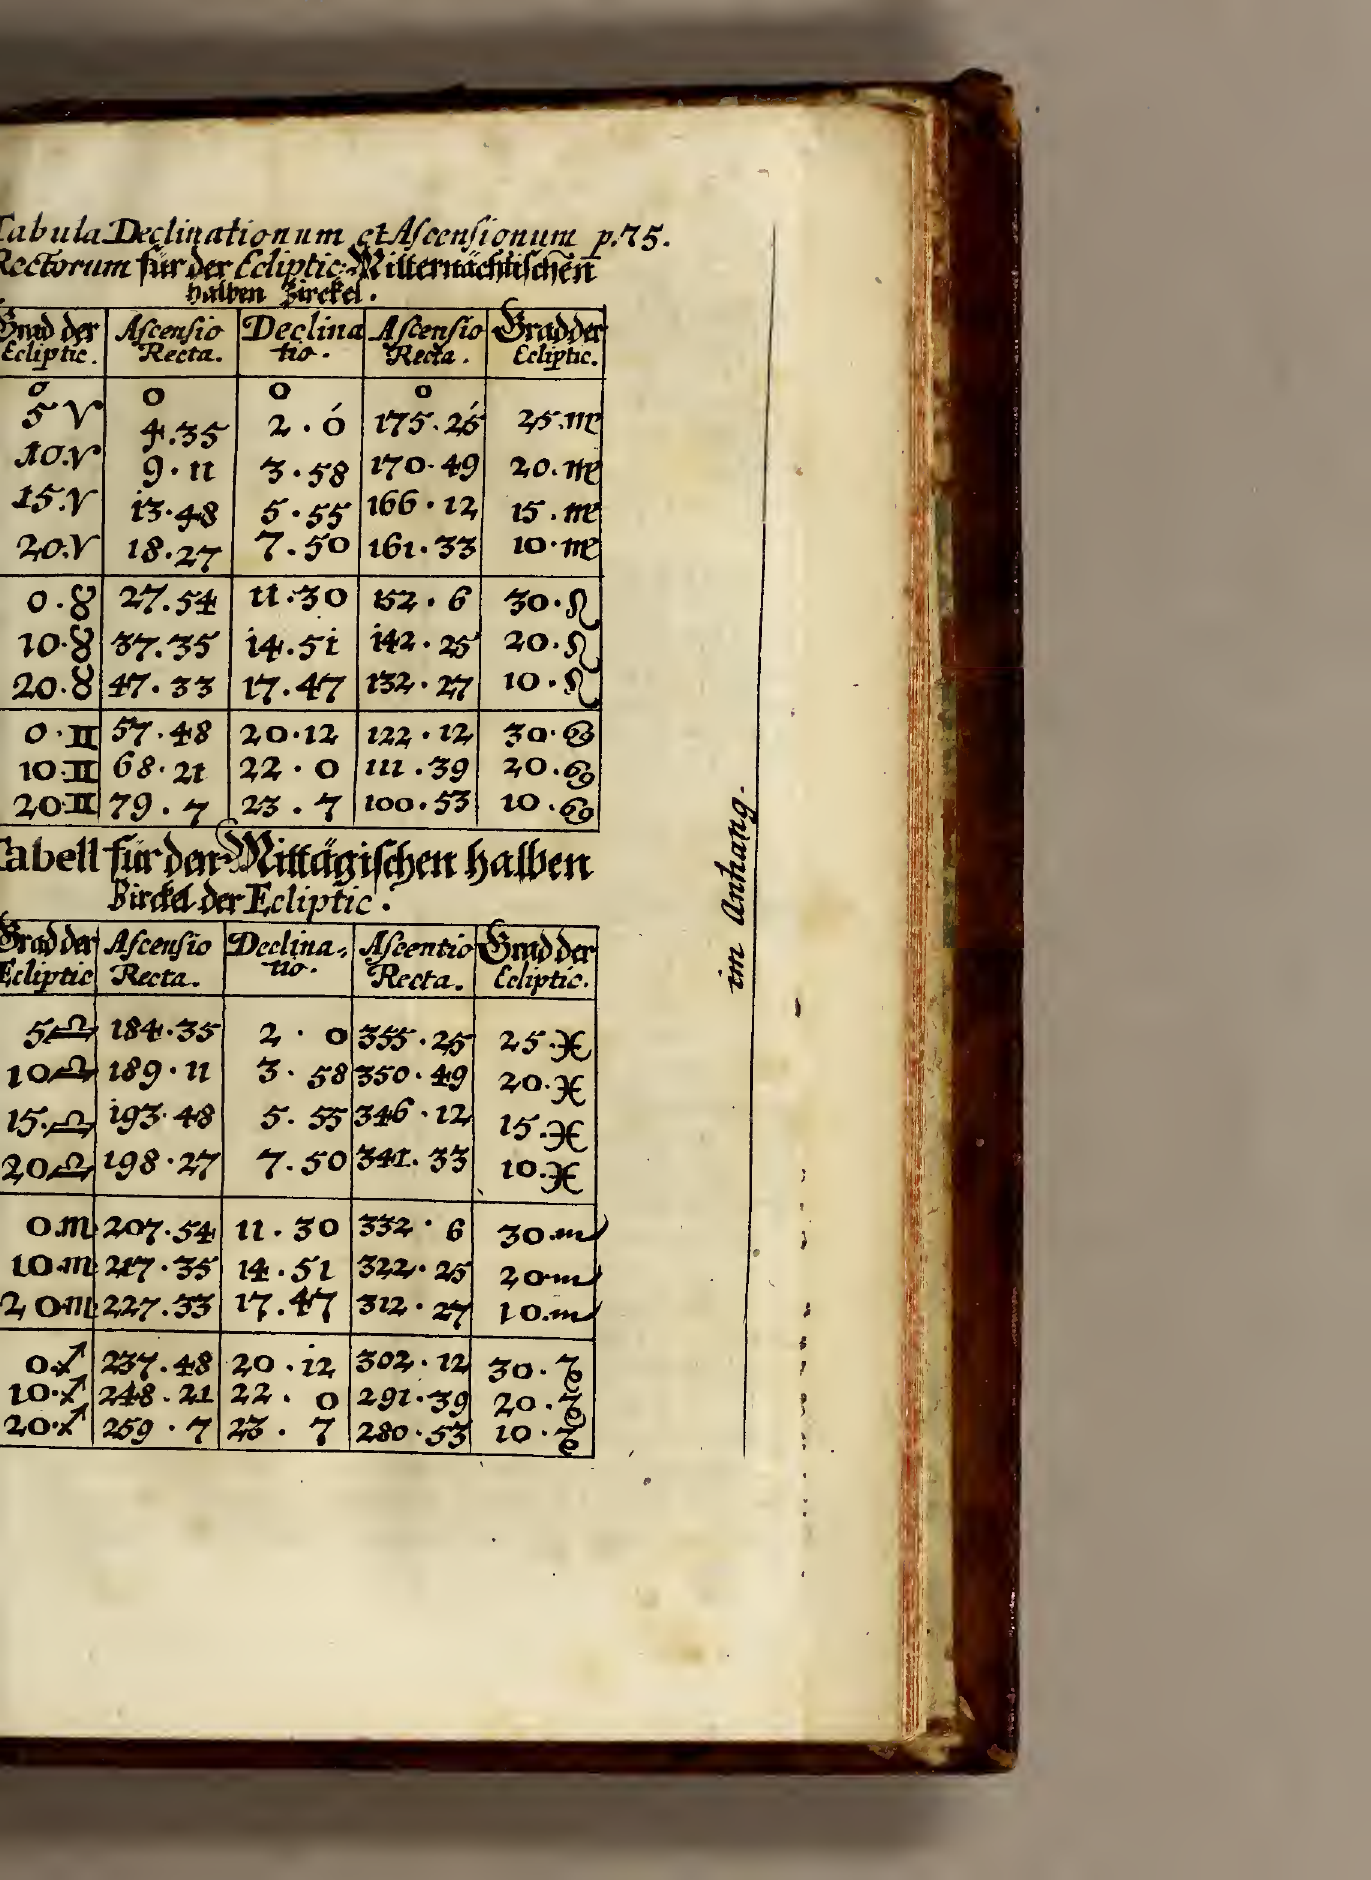 Tabula Declinationum et Ascensionum p. 75.
Rectorum für der Ecliptic-Mitternächtischen
halben Zirckel.
Grad der Ecliptic. | Ascensio Recta. | Declinatio. | Ascensio Recta. | Grad der Ecliptic.
o | o | o | o
5 ♈ | 4.35 | 2 . 0 | 175.25 | 25.♍
10.♈ | 9.11 | 3.58 | 170.49 | 20.♍
15.♈ | 13.48 | 5.55 | 166.12 | 15.♍
20.♈ | 18.27 | 7.50 | 161.33 | 10.♍
0.♉ | 27.54 | 11.30 | 152.6 | 30.♌
10.♉ | 37.35 | 14.51 | 142.25 | 20.♌
20.♉ | 47.33 | 17.47 | 132.27 | 10.♌
0.♊ | 57.48 | 20.12 | 122.12 | 30.♋
10.♊ | 68.21 | 22.0 | 111.39 | 20.♋
20.♊ | 79.7 | 23.7 | 100.53 | 10.♋
Tabell für den Mittägischen halben
Zirckel der Ecliptic.
Grad der Ecliptic | Ascensio Recta. | Declina-tio. | Ascentio Recta. | Grad der Ecliptic.
5♎ | 184.35 | 2 . 0 | 355.25 | 25.♓
10♎ | 189.11 | 3.58 | 350.49 | 20.♓
15.♎ | 193.48 | 5.55 | 346.12 | 15.♓
20♎ | 198.27 | 7.50 | 341.33 | 10.♓
0.♏ | 207.54 | 11.30 | 332.6 | 30.♒
10.♏ | 217.35 | 14.51 | 322.25 | 20♒
20♏ | 227.33 | 17.47 | 312.27 | 10.♒
0.♐ | 237.48 | 20.12 | 302.12 | 30.♑
10.♐ | 248.21 | 22.0 | 291.39 | 20.♑
20.♐ | 259.7 | 23.7 | 280.53 | 10.♑
im Anhang.